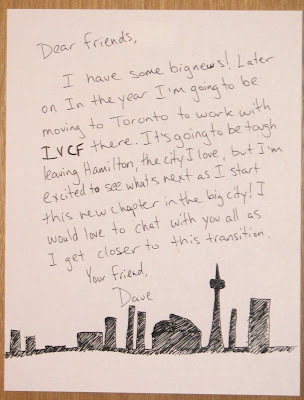 Dear friends,
I have some big news! Later
on In the year I'm going to be
moving to Toronto to work with
IVCF there. It's going to be tough
leaving Hamilton, the city I love, but I'm
excited to see what's next as I start
this new chapter in the big city! I
would love to chat with you all as
I get closer to this transition.
Your friend,
Dave